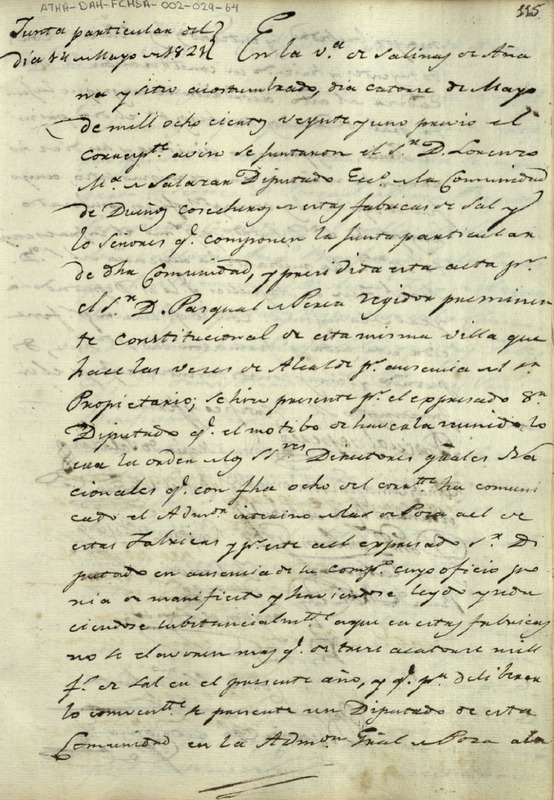 ATHA-DAH-FCHSA-002-029-64
115
Junta particular del
dia 14 de Mayo de 1821
En la v.ª de Salinas de Aña
na y sitio acostumbrado, dia catorce de Mayo
de mill ocho cientos veynte y uno previo el
correspte. aviso se juntaron el S.r D. Lorenzo
M.ª de Salazar Diputado Ecc.º de la Comunidad
de Dueños cosecheros de estas fabricas de Sal y
lo Señores q.e componen la Junta particular
de dha Comunidad, y presidida esta acta p.r
el S.r D. Pasqual de Perea regidor preeminen
te constitucional de esta misma villa que
hace las veces de Alcalde p.r ausencia del
Propietario; se hizo presente p.r el expresado S.r
Diputado q.e el motibo de haverla reunido lo
era la orden de los SS.res Directores grales Na
cionales q.e con fha ocho del corrte. ha comuni
cado el Adm.or interino de las de Poza al de
estas Fabricas y p.r este al expresado S.r Di
putado en ausencia de su comp.º cuyo oficio po
nia de manifiesto y haviendose leydo y redu
ciendose substancialm.te a que en estas fabricas
no se elavoren mas q.e de trece a catorce mill
f.s de sal en el presente año, y q.e p.a deliberar
lo convente. se presente un Diputado de esta
Comunidad en la Admon. Gral de Poza a la